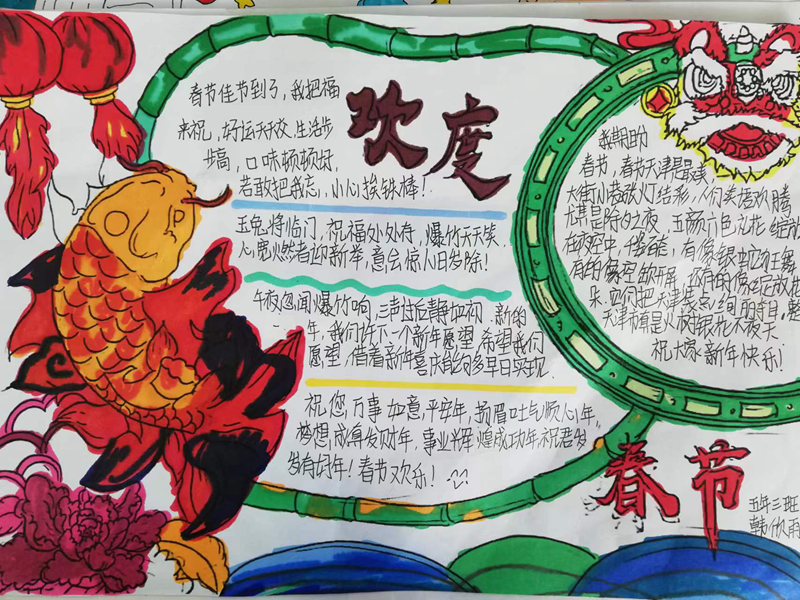 欢度
春节佳节到了，我把福
来祝，好运天天交，生活步
步高，口味顿顿好，
若敢把我忘，小心挨铁棒！
玉兔将临门，祝福处处存，爆竹天天笑
心宽燃着迎新年，意会惊人旧岁除！
午夜忽闻爆竹响，三声过后静如初，新的一
年，我们许下一个新年愿望，希望我们
愿望，借着新年喜庆能够多早日实现
祝您，万事如意，平安年，扬眉吐气顺心年，
梦想成真发财年，事业辉煌成功年，祝君岁
岁有好年！春节欢乐！
我期的
春节，春节天津是最美
大街小巷张灯结彩，人们笑语欢腾
尤其是除夕之夜，五颜六色礼花绽放
在夜空中，千姿百态，有像银蛇狂舞
有的像空
朵
天津 是火树银花不夜天
祝大家新年快乐！
春节
五年三班
韩欣雨